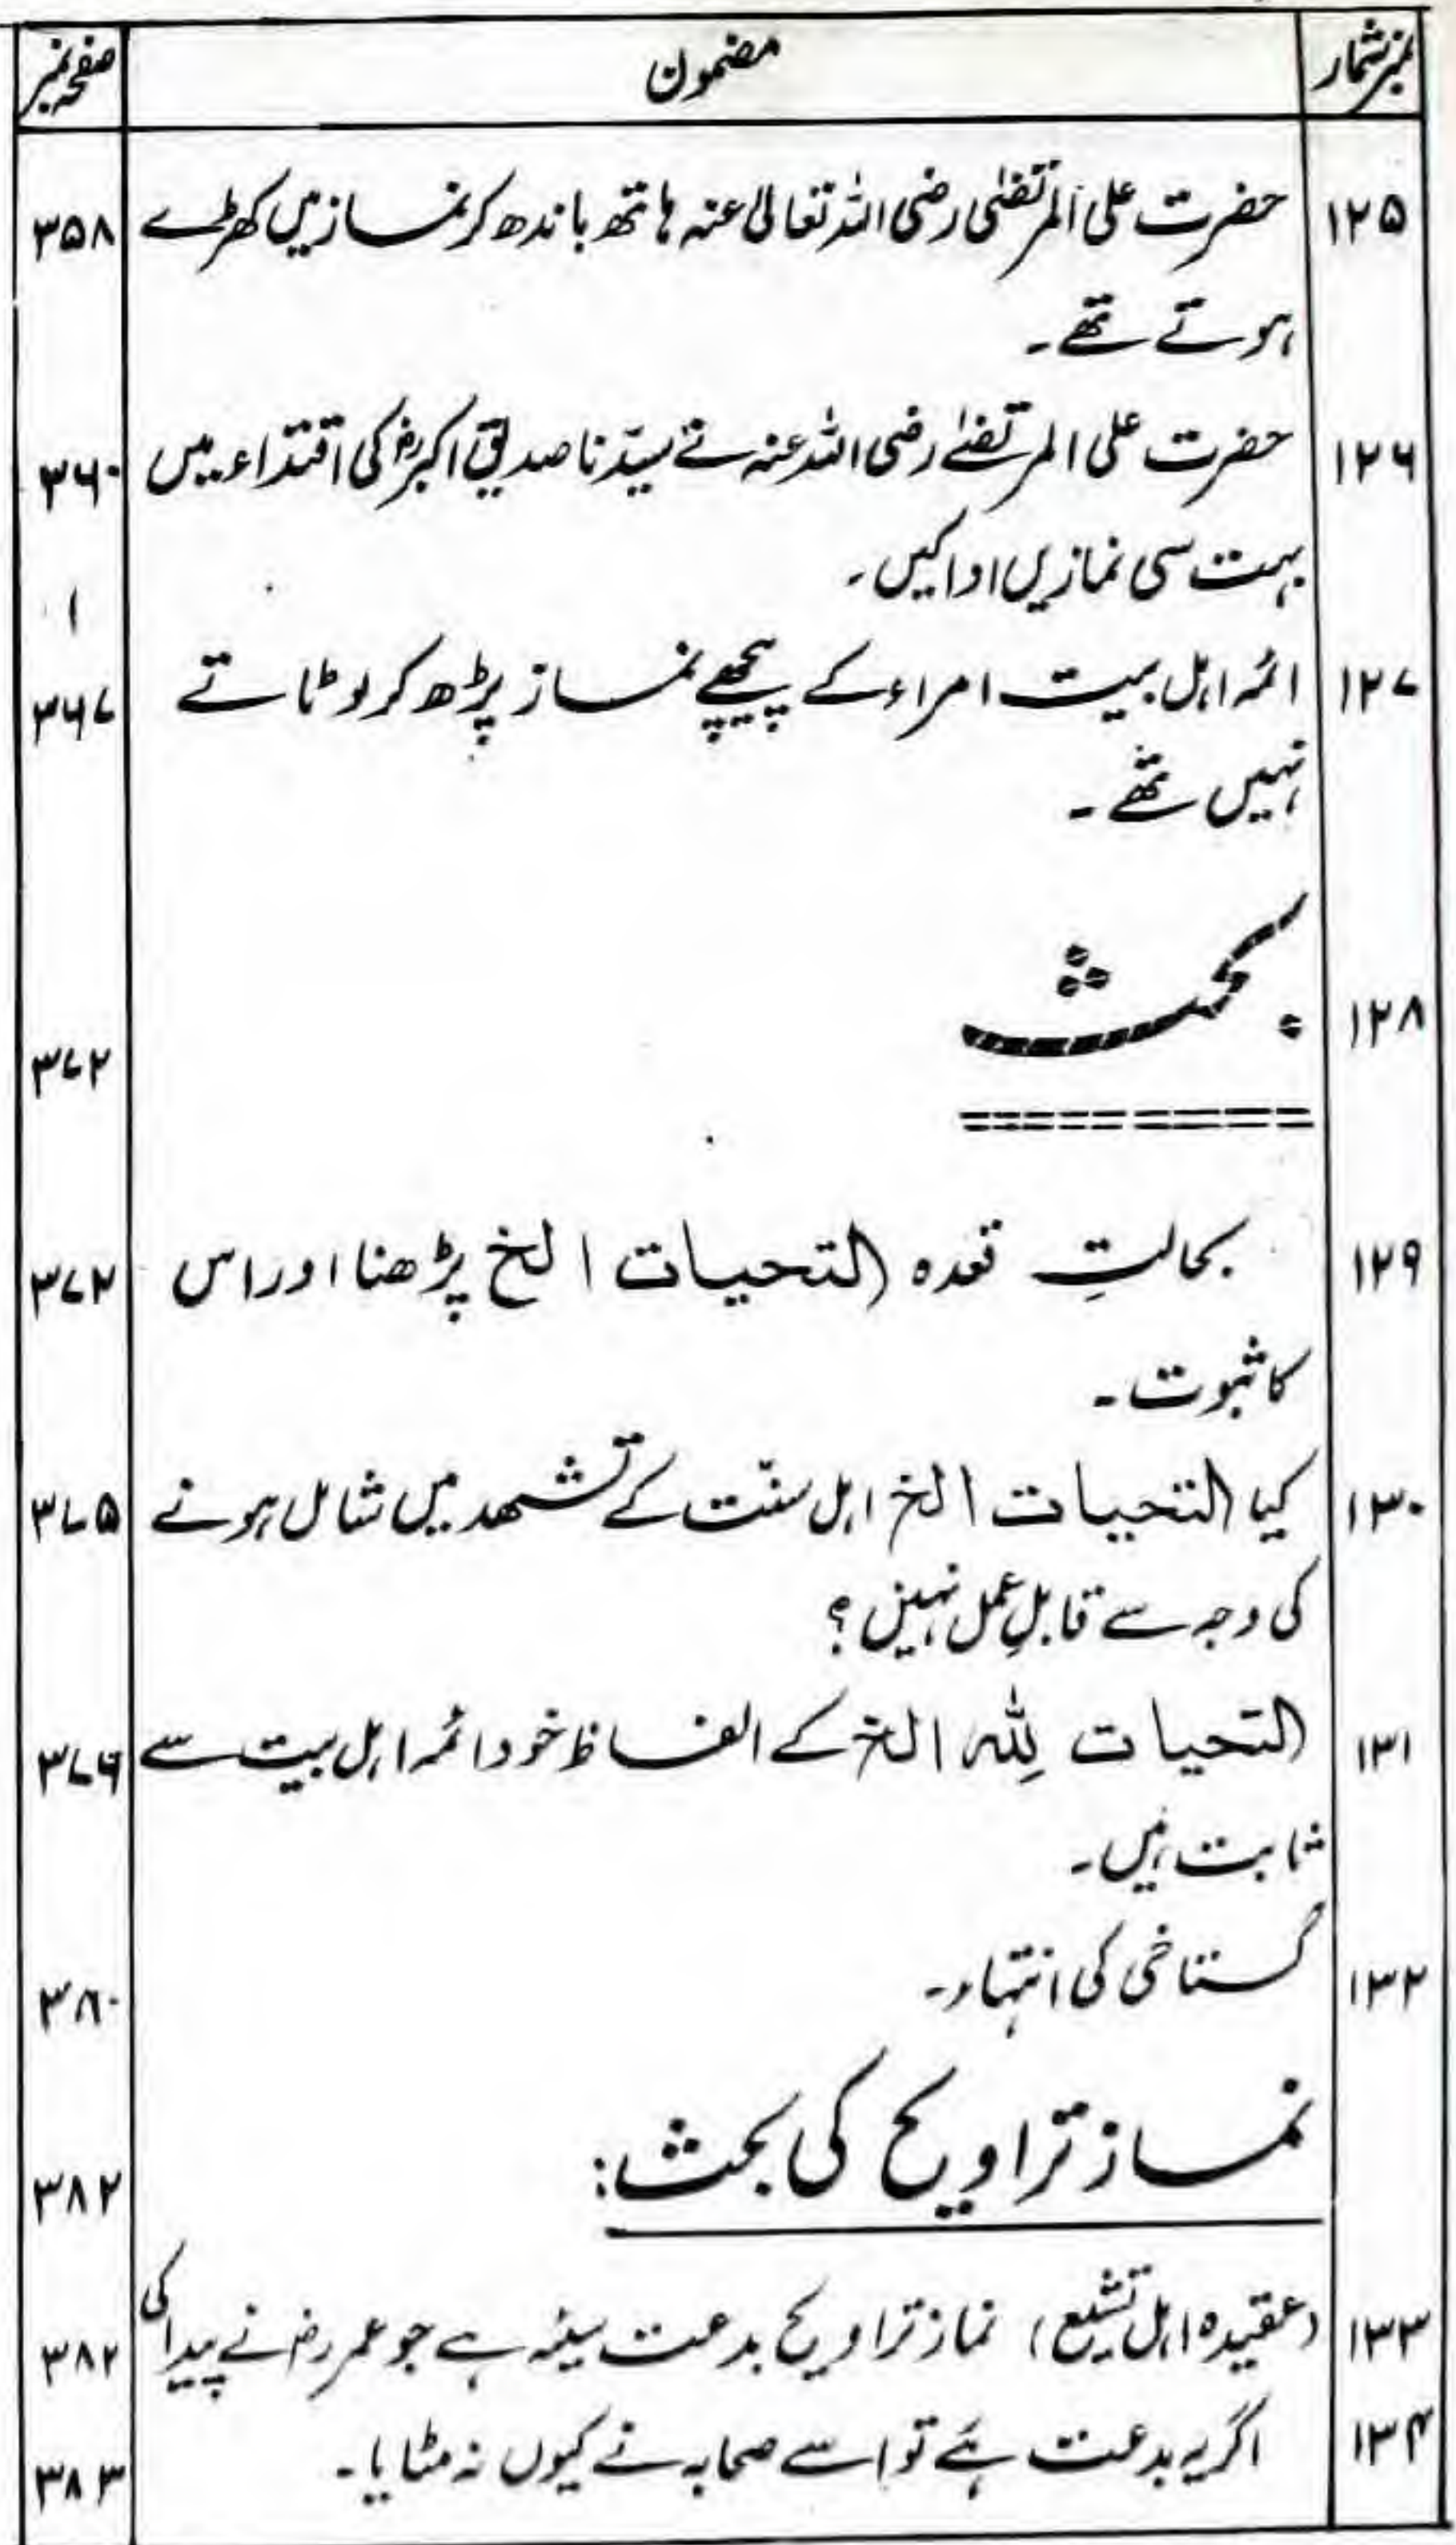 نمبر شمار مضمون صفحہ نمبر
۱۲۵ حضرت علی المرتضٰی رضی اللہ تعالیٰ عنہ ہاتھ باندھ کر نماز میں کھڑے ۳۵۸
ہوتے تھے۔
۱۲۶ حضرت علی المرتضٰے رضی اللہ عنہ نے سیّدنا صدیق اکبرؓ کی اقتداء میں ۳۶۰
بہت سی نمازیں ادا کیں۔
۱۲۷ ائمہ اہل بیت امراء کے پیچھے نماز پڑھ کر لوٹاتے ۳۶۷
نہیں تھے۔
۱۲۸ بحث ۳۷۲
۱۲۹ بحالتِ قعدہ التحیات الخ پڑھنا اور اس ۳۷۲
کا ثبوت۔
۱۳۰ کیا التحیات الخ اہل سنّت کے تشہد میں شامل ہونے ۳۷۵
کی وجہ سے قابلِ عمل نہیں؟
۱۳۱ التحیات لِلّٰہ الخ کے الفاظ خود ائمہ اہل بیت سے ۳۷۶
ثابت ہیں۔
۱۳۲ گستاخی کی انتہاء۔ ۳۸۰
نماز تراویح کی بحث: ۳۸۲
۱۳۳ (عقیدہ اہل تشیع) نماز تراویح بدعت سیئہ ہے جو عمرؓ نے پیدا کی ۳۸۲
۱۳۴ اگر یہ بدعت ہے تو اسے صحابہ نے کیوں نہ مٹایا۔ ۳۸۳